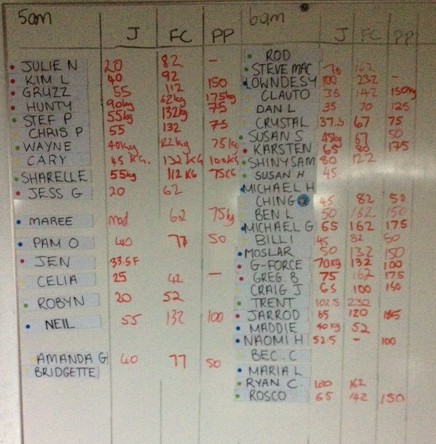 5am J FC PP
JULIE N 20 82 -
KIM L 40 92
GRUZZ 55 112 150
HUNTY 90kg 62kg 175kg
STEF P 55kg 132kg 75
CHRIS P 55 132 75
WAYNE 40kg 82kg 75kg
CARY 45 KG. 132 KG 100KG
SHARELLE 55kg 112 KG 75KG
JESS G 20 62
MAREE mod 62 75kg
PAM O 40 77 50
JEN 33.5F
CELIA 25 42 -
ROBYN 20 52
NEIL 55 132 100
AMANDA G 40 77 50
BRIDGETTE
6am J FC PP
ROD
STEVE MAC 162
LOWNDESY 100 232 -
CLAUTO 35 142 150kg
DAN L 35 70 125
CRYSTAL 37.5 67 75
SUSAN S 45kg 67 50
KARSTEN 65 175
SHINY SAM 50 122
SUSAN H 45
MICHAEL H
CHING 45 82 50
BEN L 50 162 150
MICHAEL G 65 162 175
BILL I 45 82 50
MOSLAR 50 132 150
G-FORCE 70kg 132 100
GREG B 75 162 175
CRAIG J 65 100 150
TRENT 102.5 232
JARROD 65 120
MADDIE 40kg 52
NAOMI H 52.5 - 100
BEC. C
MARIA L
RYAN C. 100 162
ROSCO 65 142 150